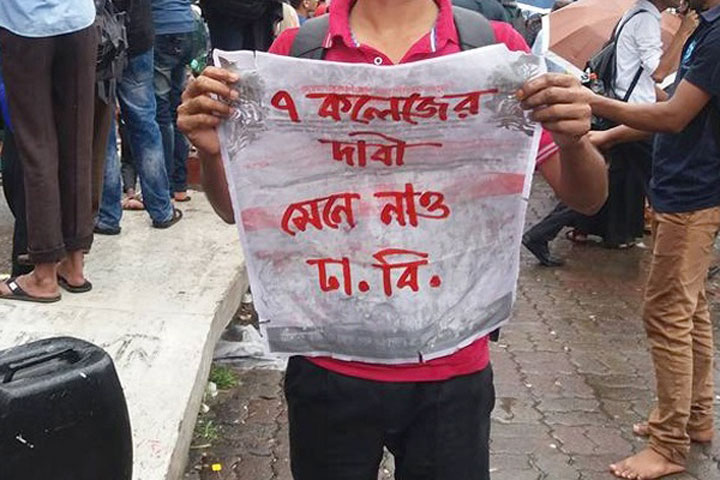 ৭ কলেজের
দাবী
মেনে নাও
ঢা.বি.